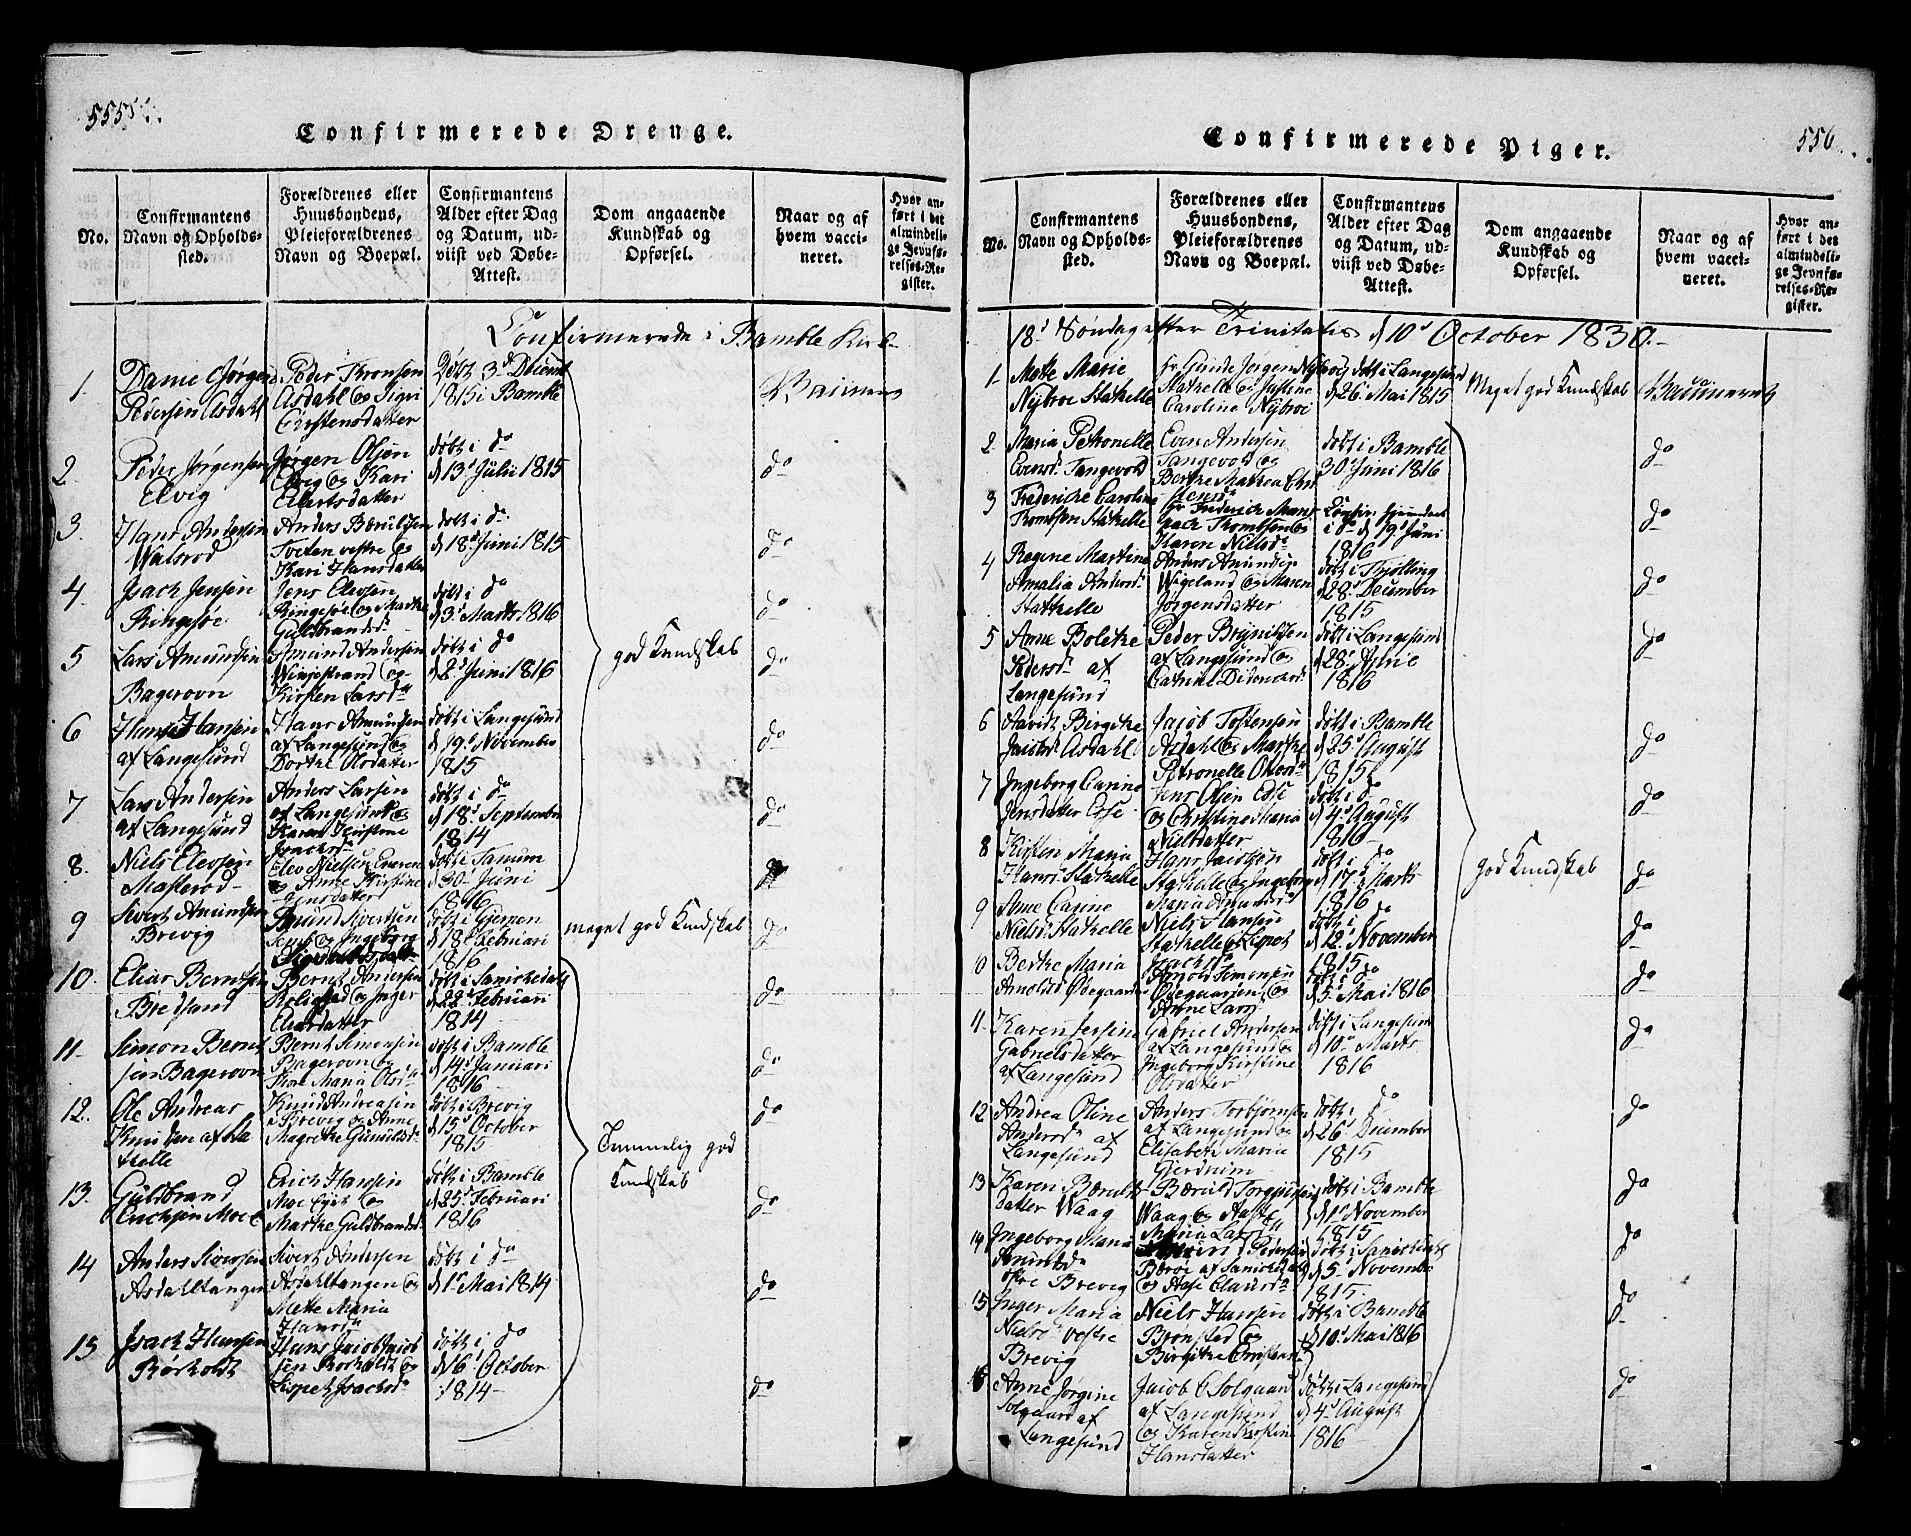 555
Confirmerede Drenge.
No.
Confirmantens
Navn og Opholds-
sted.
Forældrenes eller
Huusbondens,
Pleieforældrenes
Navn og Boepæl.
Confirmantens
Alder efter Dag
og Datum, ud-
viist ved Døbe-
Attest.
Dom angaaende
Kundskab og
Opførsel.
Naar og af
hvem vacci-
neret.
Hvor an-
ført i det
almindeli-
ge Jevnfø-
relses-Re-
gister.
Confirmerede i Bamble
1.
Pedersen Asdahl
Peder
Asdahl og Sigri
Kirstensdatter
døbt 3d
1815 i Bamble
2.
Peder Jørgensen
Elvig
Jørgen Olsen
Elvig og Kari
døbt i do
d 13d Julii 1815
do
3.
Hans Andersen
Valsrod
Anders
Tveten vestre og
Kari Hansdatter
døbt i do
d 18d Juni 1815
do
4
Isach Jensen
Ringsøe
Jens Elevsen
Ringsøe og Marthe
Guldbrandsd
døbt i do
d 3d Marts 1816
do
5
Lars Amundsen
Bagerovn
Amund Andersen
og
Kirsten Larsd
døbt i do
d 2d Juni 1816
god Kundskab
do
6
Hans Hansen
af Langesund
Hans Amundsen
af Langesund og
Dorthe Olsdatter
døbt i Langesund
d 19d November
1815
do
7
Lars Andersen
af Langesund
Anders Larsen
af Langesund og
Karen Kirstine
Isachsd
døbt i do
d 18d Septembr
1814
do
8.
Niels Elevsen
Elev Nielsen
og Anne Kirstine
døbt i Sanum
d 30 Juni
1816
9
Sivert Amundsen
Brevig
Amund Sivertsen
og Ingeborg
døbt i Gjerpen
d 18 Februari
1816
meget god Kundskab
do
10.
Elias Berntsen
Bernt Andersen
og Inger
Eliasdatter
døbt i
d 22d Februari
1814
do
11.
Simon Bernt
sen Bagerovn
Bernt Simonsen
Bagerovn og
Maria Olsd
døbt i Bamble
d 14d Januari
1816
do
12.
Ole Andreas
Knudsen af Sta
thelle
Knud Andreasen
Brevig og Anne
Magrethe
døbt i Brevig
d 15d October
1815
Temmelig god
Kundskab
do
13.
Guldbrand
Erichsen Moe
Erich Hansen
Moe og
Marthe Guldbrandsd
døbt i Bamble
d 25d Februari
1816
do
14
Anders Sivertsen
Asdahltangen
Sivert Andersen
Asdahltangen og
Mette Maria
Hansd
døbt i do
d 1d Mai 1814
do
15
Isach Hansen
Rørholdt
Hans Jacob Jacob
sen Rørholdt og
Lispet Isachsd
døbt i do
d 16d October
1814
do
556
Confirmerede Piger.
No.
Confirmantens
Navn og Opholds-
sted.
Forældrenes eller
Huusbondens,
Pleieforældrenes
Navn og Boepæl.
Confirmantens
Alder efter Dag
og Datum, ud-
viist ved Døbe-
Attest.
Dom angaaende
Kundskab og
Opførsel.
Naar og af
hvem vacci-
neret.
Hvor an-
ført i det
almindeli-
ge Jevnfø-
relses-Re-
gister.
18d Søndag efter Trinitatis d 10d October 1830.
1
Mette Marie
Nybroe Stathelle
Jørgen Nybroe
Stathelle og Justine
Caroline Nybroe
døbt i Langesund
d 26 Mai 1815
Meget god Kundskab
Vaccineret
2
Maria Petronelle
Evensd Tangevold
Even Andersen
Tangevold og
Berthe Mathea
døbt i Bamble
30d Juni 1816
do
3
Frederiche Caroline
Stathelle
Karen Nielsd
i do d 19d Juni
1816
do
4
Regine Martine
Amalia Andersd
Stathelle
Anders
og Maren
Jørgensdatter
døbt i Tjølling
d 28d December
1815
do
5
Anne Bolethe
Pedersd af
Langesund
Peder Brynildsen
af Langesund og
døbt i Langesund
d 28d
1816
do
6
Birgithe
Jacobsd Asdahl
Jacob Tostensen
Asdahl og Marthe
Petronelle
døbt i Bamble
d 25d August
1815
do
7
Ingeborg Carine
Jensdatter
Jens Olsen
og Christine Maria
Nielsdatter
døbt i do
d 4d August
1816
do
8
Kirsten Maria
Hansd Stathelle
Hans Jacobsen
Stathelle og Ingeborg
Maria
døbt i do
d 17d Marts
1816
god Kundskab
do
9
Anne Carine
Nielsd Stathelle
Niels Hansen
Stathelle og Lispet
Isachsd
døbt i do
d 12d November
1815
do
10
Berthe Maria
Arnoldsd Ødegaarden
Arnold Simonsen
Ødegaarden og
Anne Larsd
døbt i do
d 5d Mai 1816
do
11
Karen
Gabrielsdatter
af Langesund
Gabriel Andersen
af Langesund og
Ingeborg Kirstine
Olsdatter
døbt i Langesund
d 10d Marts
1816
do
12
Andrea Oline
Andersd af
Langesund
Anders Torbjørnsen
af Langesund og
Elisabeth Maria
Gjerdrum
døbt i do
d 26d December
1815
do
13
Karen
datter Waag
Waag og
Maria
døbt i Bamble
d 1d November
1815
do
14
Ingeborg Maria
Brevig
Pedersen
og Clausd
døbt i
d 5d November
1815.
do
15
Inger Maria
Nielsd vestre
Brevig
Niels Hansen
og
Birgithe
døbt i Bamble
d 10d Mai 1816
do
16
Anne Jørgine
Solgaard af
Langesund
Jacob C Solgaard
af Langesund
og Karen Kirstine
Hansdatter
døbt i Langesund
d 4d August
1816
do